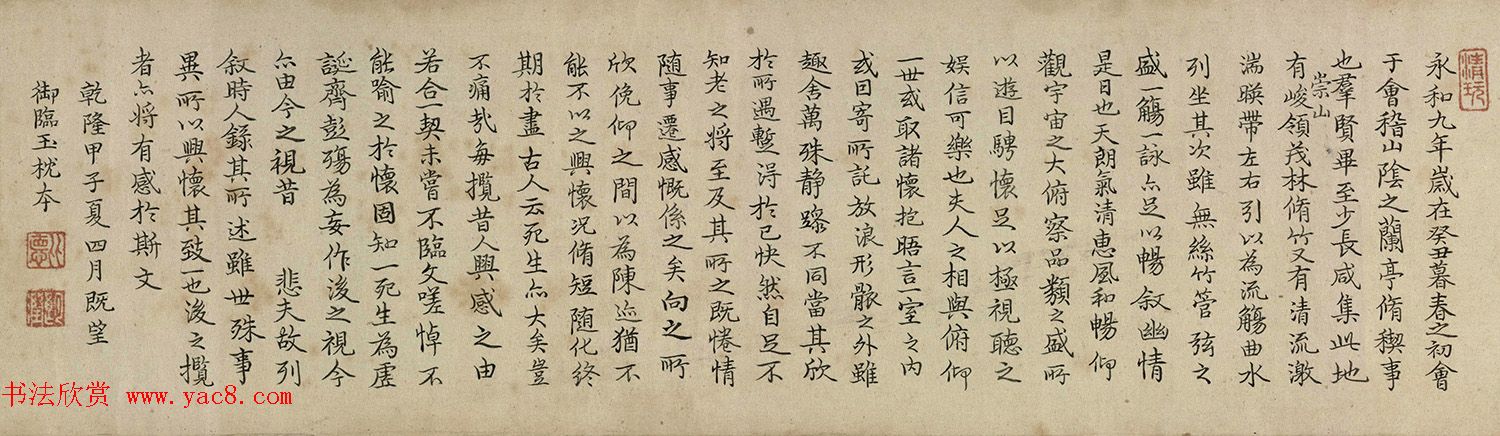 永和九年歲在癸丑暮春之初會
于會稽山陰之蘭亭脩稧事
也羣賢畢至少長咸集此地
有崇山峻領茂林脩竹又有清流激
湍暎帶左右引以為流觴曲水
列坐其次雖無絲竹管弦之
盛一觴一詠亦足以暢叙幽情
是日也天朗氣清惠風和暢仰
觀宇宙之大俯察品類之盛所
以遊目騁懷足以極視聽之
娛信可樂也夫人之相與俯仰
一世或取諸懷抱晤言一室之內
或因寄所託放浪形骸之外雖
趣舍萬殊静躁不同當其欣
於所遇蹔得於己快然自足不
知老之將至及其所之既惓情
随事遷感慨係之矣向之所
欣俛仰之間以為陳迹猶不
能不以之興懷況脩短随化終
期於盡古人云死生亦大矣豈
不痛哉每攬昔人興感之由
若合一契未嘗不臨文嗟悼不
能喻之於懷固知一死生為虛
誕齊彭殤為妄作後之視今
亦由今之視昔 悲夫故列
叙時人錄其所述雖世殊事
異所以興懷其致一也後之攬
者亦將有感於斯文
乾隆甲子夏四月既望
御臨玉枕本
书法欣赏 www.yac8.com